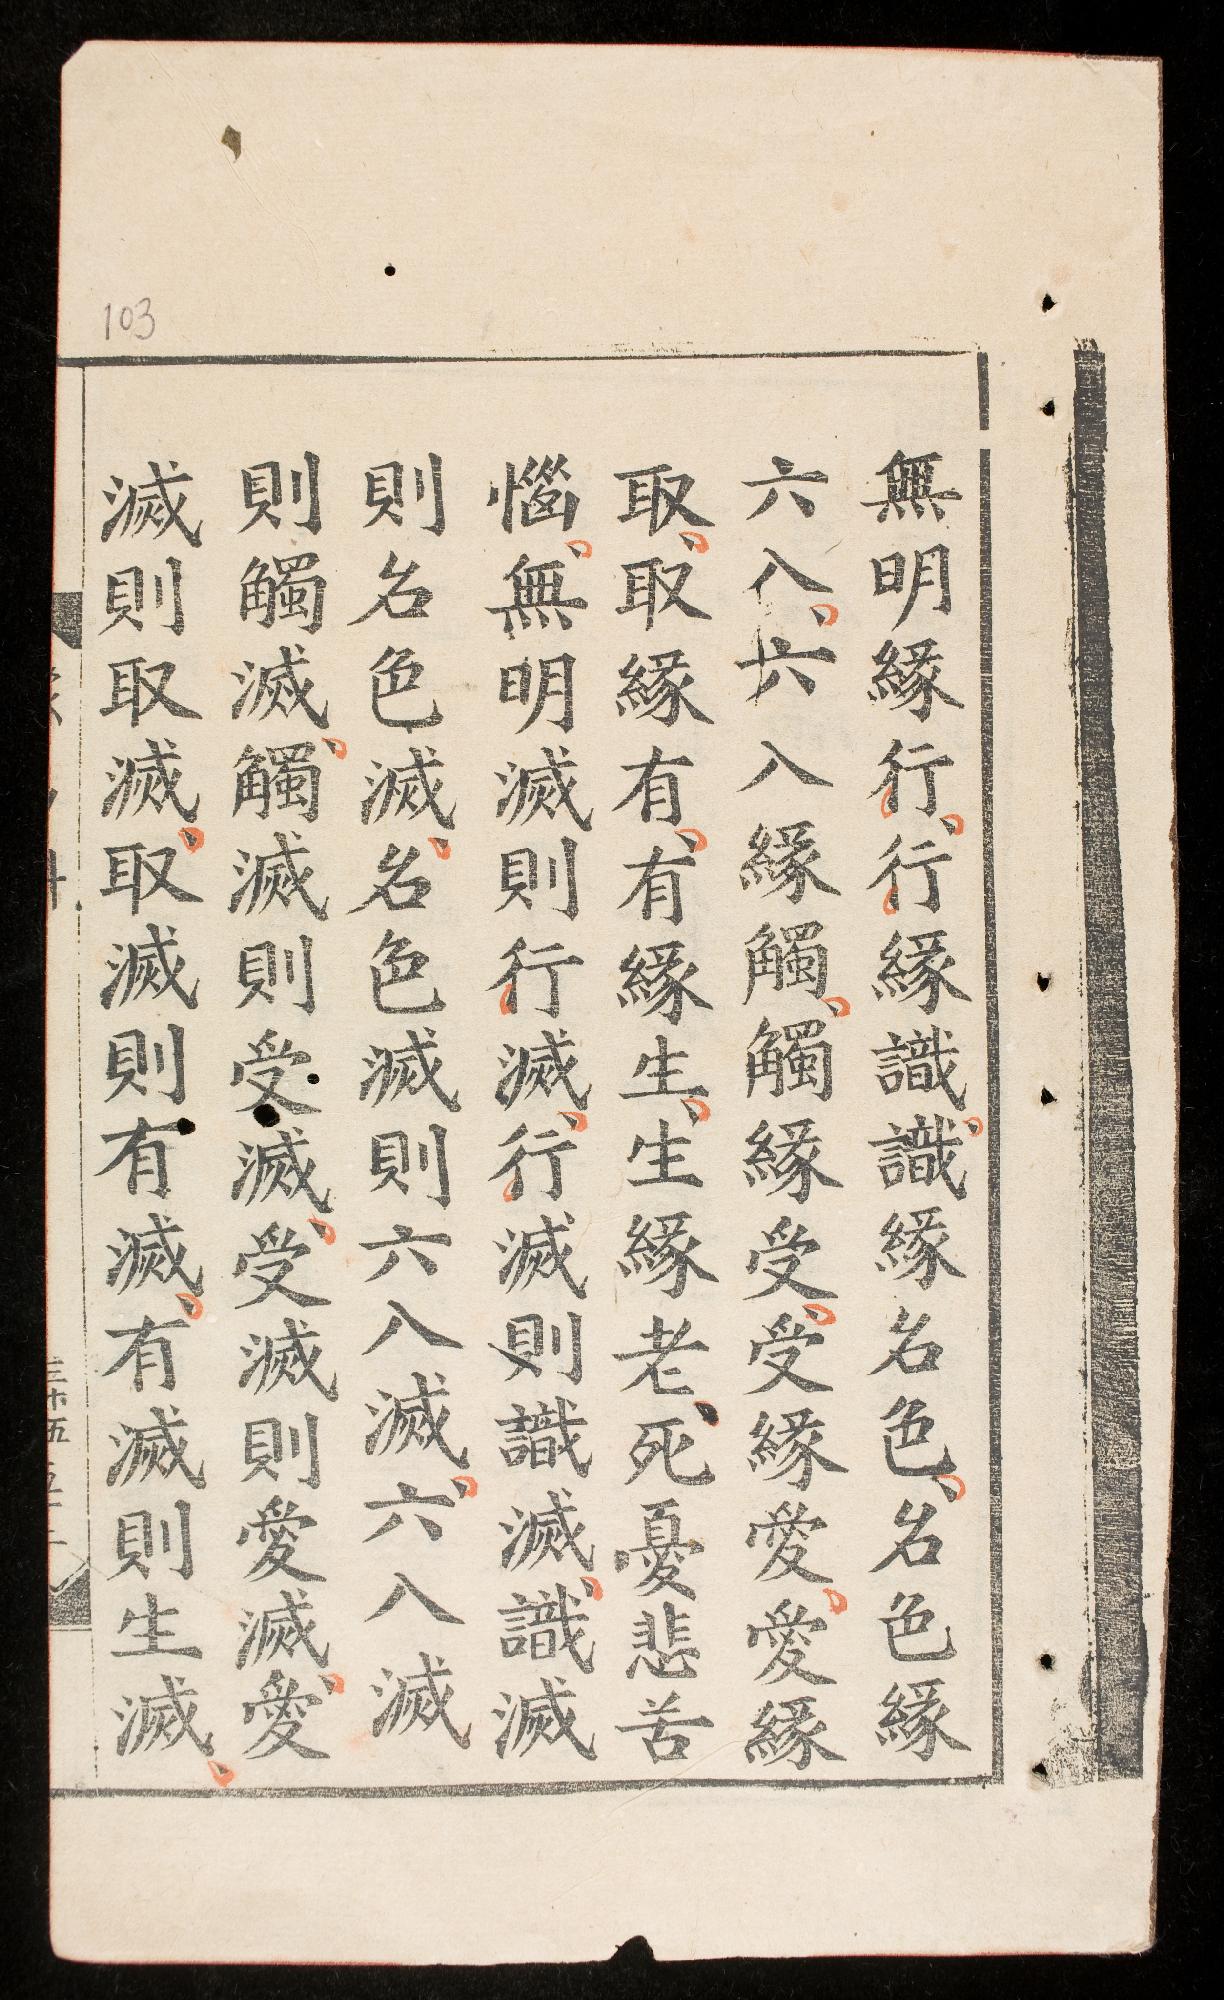 無明緣行、行緣識、識緣名色、名色緣
六八、六八緣觸、觸緣受、受緣愛、愛緣
取、取緣有、有緣生、生緣老、死憂悲苦
惱、無明滅則行滅、行滅則識滅、識滅
則名色滅、名色滅則六八滅、六八滅
則觸滅、觸滅則受滅、受滅則愛滅、愛
滅則取滅、取滅則有滅、有滅則生滅、
三十五
103